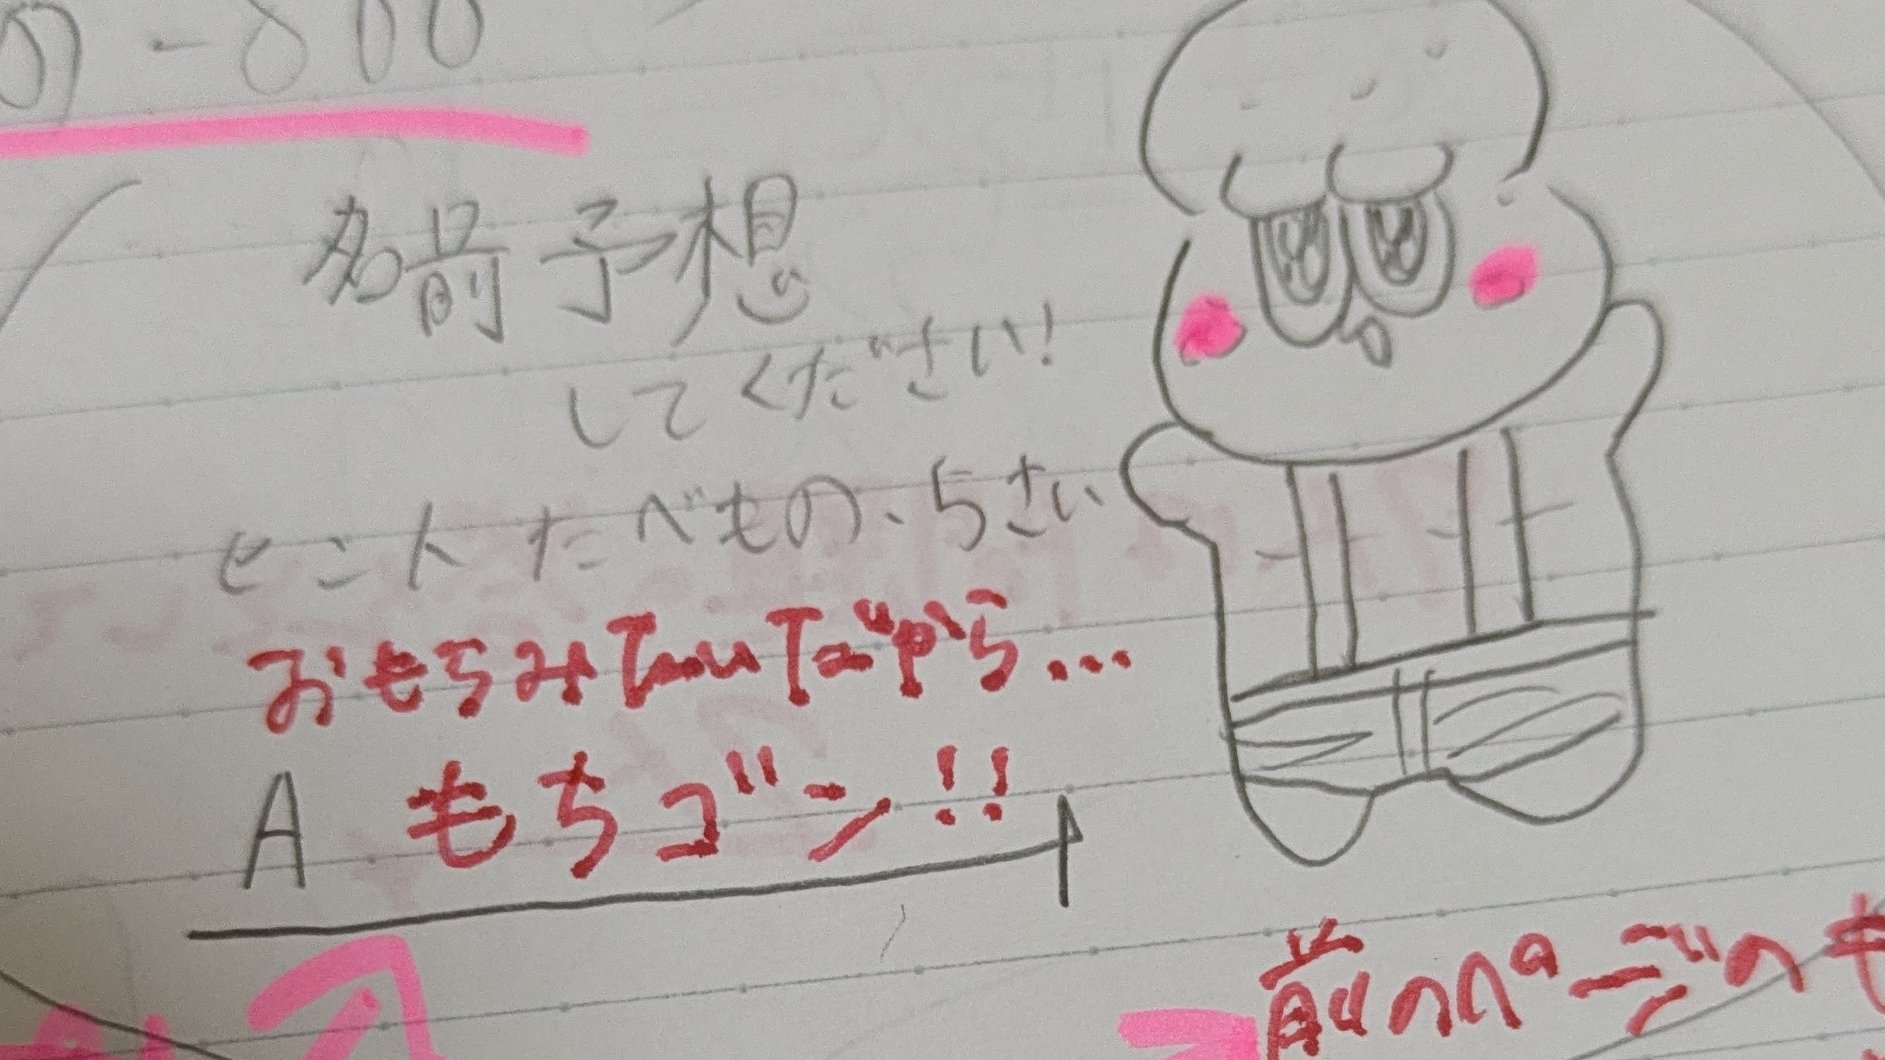 名前予想
してください!
ヒント たべもの、ちさい
おもちみたいだから...
A もちゴン!!
前のページのも